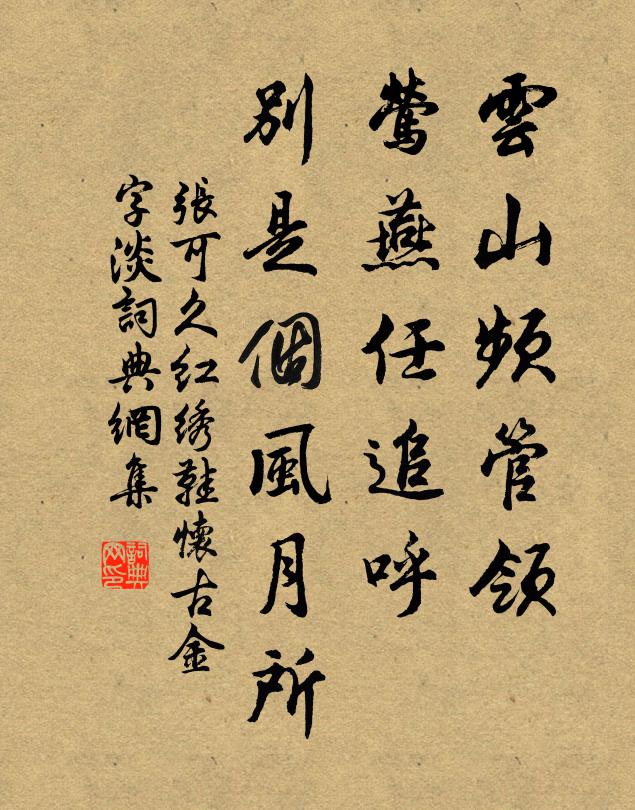 雲山頻管領
鶯燕任追呼
別是個風月所
張可久红绣鞋懷古金
字淡詞典網集
詞典網印